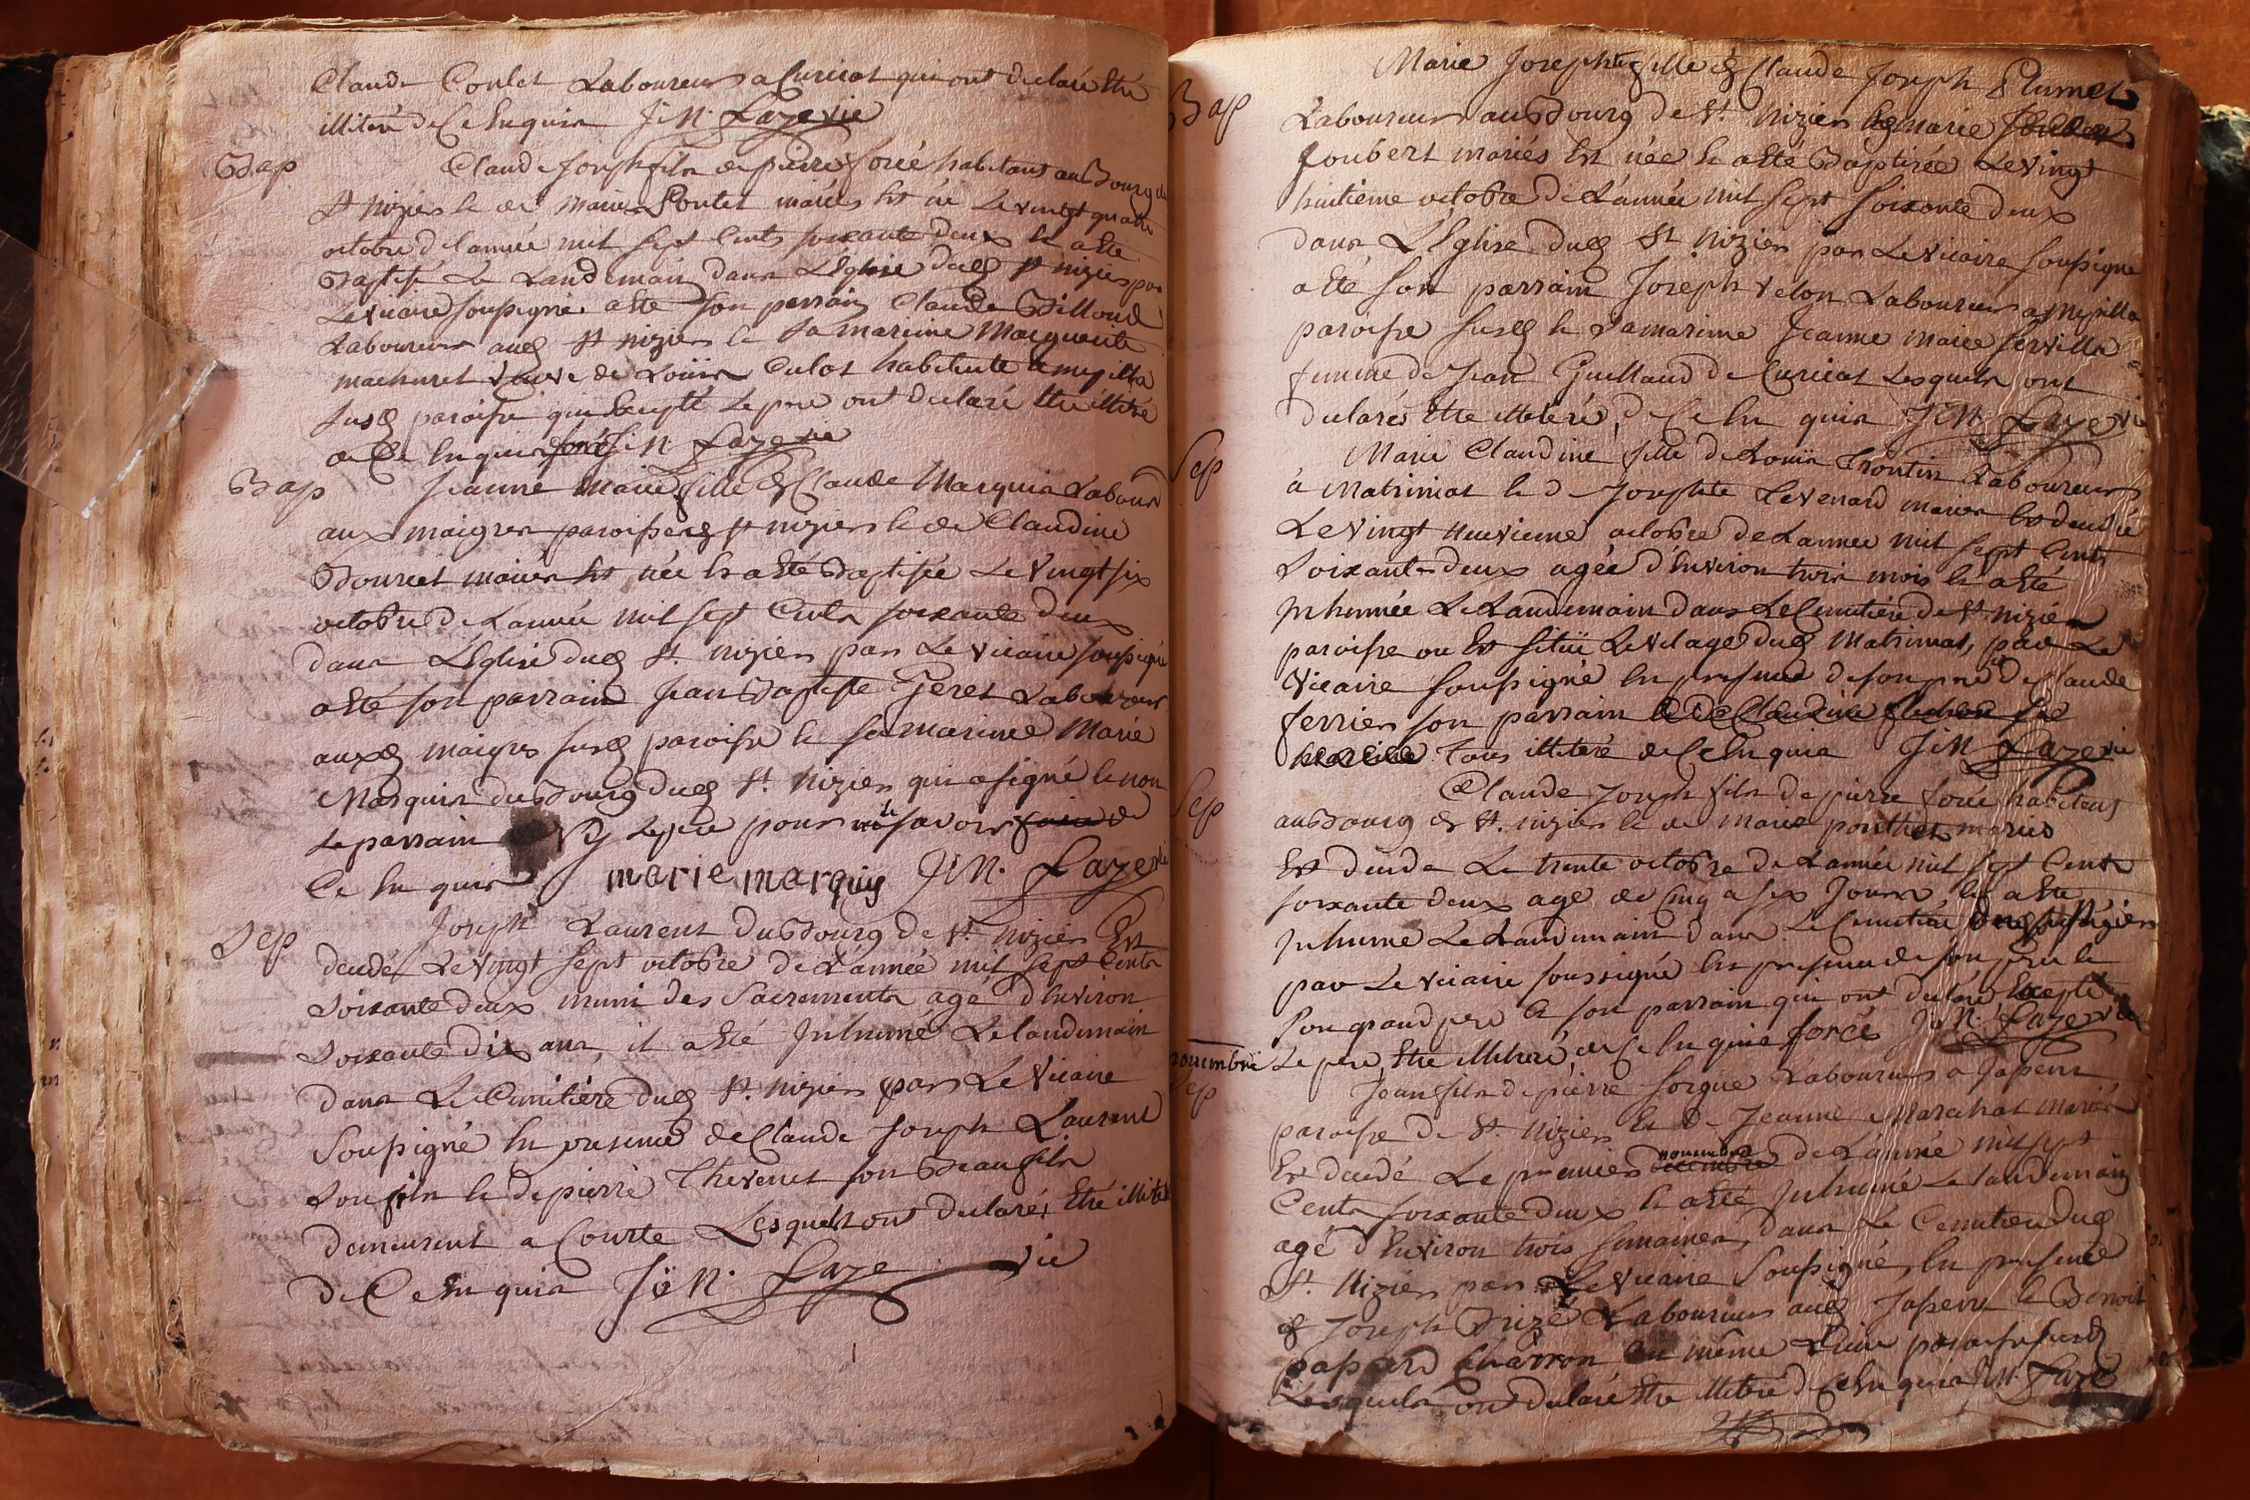 Claude Coulet Laboureur a Curciat qui ont declaré être
illiteré de ce Enquis J: N. Lazevie
Bap
Claude Joseph fils de pierre forcé habitant au Bourg de
St nizier et de marie Pontet mariés est né Le vingt quatre
octobre de l'année mil sept Cents soixante deux et a été
Baptisé Le Landemain dans L'Eglise dud St nizier par
Le vicaire soussigné a été son parrain Claude Billoud
Laboureur aud St nizier et La maraine Marguerite
machuret veuve de Loüis Culot habitante a mepilla
susd paroisse qui Excepté Le pere ont declaré être illitéré
de Ce Enquis forcé J: N. Lazevie
Bap
Jeanne Marie fille de Claude Marquis Laboureur
aux maigres paroisse de St nizier et de Claudine
Bourcet mariés est née et a été Baptisée Le Vingt six
octobre de L'année mil sept Cents soixante deux
dans L'Eglise dud St. nizier par Le vicaire soussigné
a été son parrain Jean Baptiste Geret Laboureur
auxd maigres susd paroisse et sa maraine Marie
Marquis du Bourg dud St. nizier qui a signé et non
Le parrain Ny Le pere pour ne le savoir faire de
Ce Enquis marie marquis J: N. Lazevie
Sep
Joseph Laurent du Bourg de St. Nizier Est
decedé Le vingt sept octobre de L'année mil sept Cents
soixante deux muni des Sacrements agé d'Environ
soixante dix ans, il a été Inhumé Le Landemain
dans Le Cimitière dud St. nizier par Le Vicaire
Soussigné En presence de Claude Joseph Laurent
son fils et de pierre Thevenet son Beaufils
demeurent a Courte Lesquels ont declarés Etre illiteré
de Ce Enquis J: N. Lazevie
Bap
Marie Josephte fille de Claude Joseph Plumet
Laboureur au Bourg de St. Nizier et de marie
Joubert mariés Est née et a été Baptisée Le Vingt
huitième octobre de L'année mil sept soixante deux
dans L'Eglise dud St nizier par Le vicaire soussigné
a été son parrain Joseph Velon Laboureur a mepilla
paroisse susd et sa maraine Jeanne marie servilla
femme de Jean Guillaud de Curciat Lesquels ont
declarés Etre illiteré, de Ce En quis J: N. Lazevie
Sep
Marie Claudine fille de Loüis Frontin Laboureur
à Matrimat et de Josephte Levenard mariés Est decedée
Le vingt neuvieme octobre de L'annee mil sept Cents
Soixante deux agée d'Environ trois mois et a été
Inhumée Le Landemain dans Le Cimitière de St. nizier
paroisse ou Est sitüé Le vilage dud Matrimat, par Le
Vicaire soussigné En presence de son pere et de Claude
ferrier son parrain
tous illiteré de Ce Enquis J: N Lazevie
Sep
Claude Joseph fils de pierre forcé habitant
au Bourg de St. nizier et de marie ponthet mariés
Est decedé Le trente octobre de L'année mil sept Cents
soixante deux agé de Cinq a six Jours et a été
Inhumé Le Landemain dans Le Cimitière dud St nizier
par Le vicaire soussigné En presence de son pere et
son grand pere et son parrain qui ont declaré Excepté
Le pere, Etre illiteré de Ce Enquis forcé J: N. Lazevie
nouembre
Sep
Jean fils de pierre sorgue Laboureur a Japenne
paroisse de St. Nizier Et de Jeanne Marechat mariés
Est decedé Le premier novembre de L'année mil sept
Cents soixante deux Et a été Inhumé Le Landemain
agé d'Environ trois semaines, dans Le Cimitier dud
St. Nizier par Le vicaire Soussigné, En presence
de Joseph Brizé Laboureur aud Japenne et Benoit
passerd Charron au même Lieu paroisse susd
Lesquels ont declaré être illitéré de Ce Enquis J: N. Laze